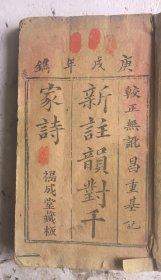 庚戌年鐫
較正無訛 昌重基記
新註韻對千
家詩
福成堂藏板